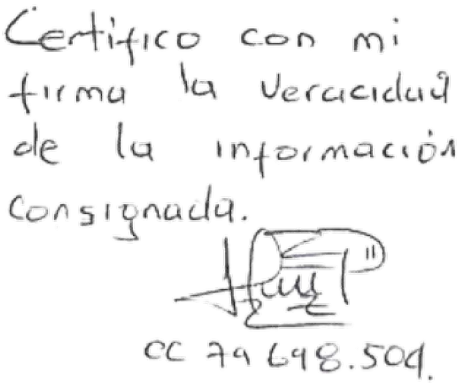 Certifico con mi
firma la veracidad
de la información
consignada.
CC 79698.509.